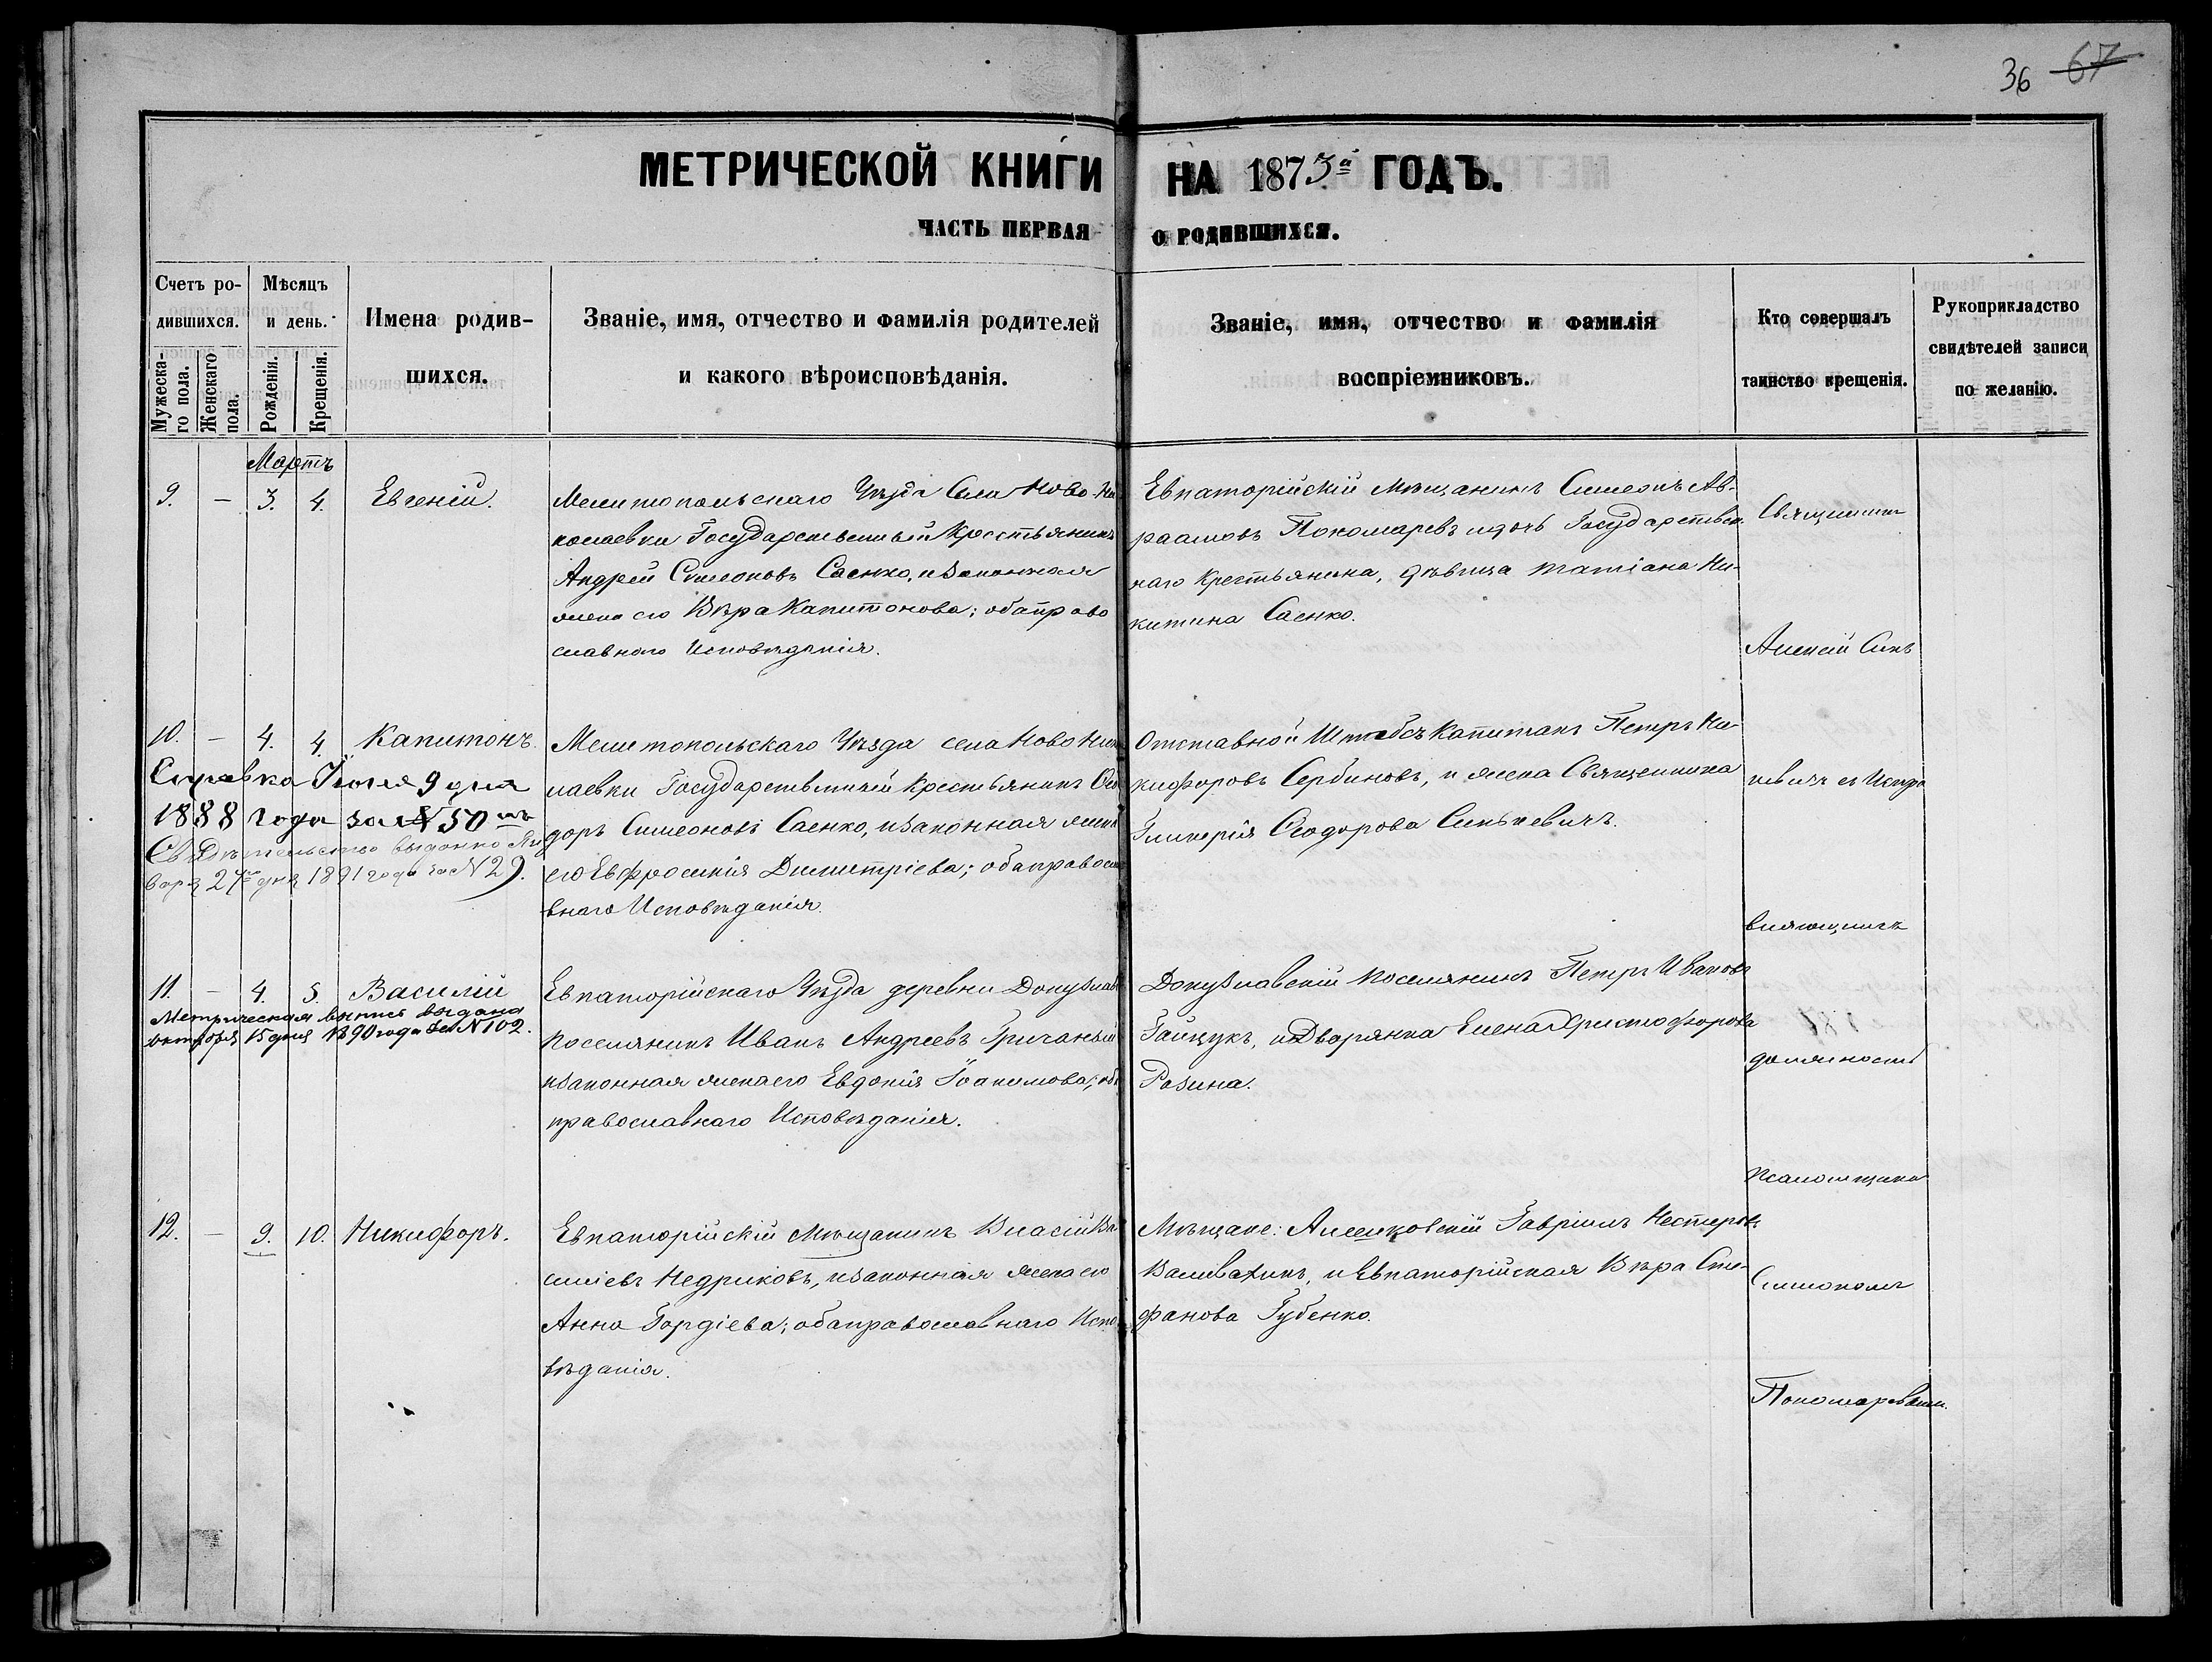 36 67
МЕТРИЧЕСКОЙ КНИГИ НА 1873й ГОДЪ.
ЧАСТЬ ПЕРВАЯ О РОДИВШИХСЯ.
Счетъ родившихся.
Мужескаго пола.
Женскаго пола.
Мѣсяцъ и день.
Рожденія.
Крещенія.
Имена родившихся.
Званіе, имя, отчество и фамилія родителей
и какого вѣроисповѣданія.
Званіе, имя, отчество и фамилія
воспріемниковъ.
Кто совершалъ
таинство крещенія.
Рукоприкладство
свидѣтелей записи
по желанію.
Мартъ
9. — 3. 4. Евгеній.
Мелитопольскаго Уѣзда Села Ново-Ни
колаевки Государственный Крестьянинъ
Андрей Симеоновъ Саенко, и законная
жена его Вѣра Капитонова; оба право
славного Исповѣданія.
Евпаторійскій мѣщанинъ Симеонъ Ав-
раамовъ Пономаревъ и дочь Государствен
наго Крестьянина, дѣвица Татіана Ни-
китина Саенко.
10. — 4. 4. Капитонъ.
Справка Іюля 9 дня
1888 года за № 50мъ
Свидѣтельство выданно Ян
варя 24го дня 1891 года за № 29.
Мелитопольскаго Уѣзда села Ново Нико
лаевки Государственный Крестьянинъ Ѳео
доръ Симеоновъ Саенко, и законная жена
его Евфросинія Димитріева; оба правосла
внаго Исповѣданія.
Отставной Штабсъ Капитанъ Петръ Ни-
кифоровъ Сербиновъ, и жена Священника
Гликерія Ѳеодорова Синькевичъ.
11. — 4. 5. Василій
Метрическая выпись выдана
октября 15 дня 1890 года за № 102.
Евпаторійскаго Уѣзда деревни Донузлавъ
поселянинъ Иванъ Андреевъ Гричаный
и законная жена его Евдокія Іоакимова; оба
православнаго Исповѣданія.
Донузлавскій поселянинъ Петръ Ивановъ
Гайцукъ, и Дворянка Елена Христофорова
Розина.
12. — 9. 10. Никифоръ.
Евпаторійскій Мѣщанинъ Власій Ва
силіевъ Недриковъ, и законная жена его
Анна Гордіева; оба православнаго Испо
вѣданія.
Мѣщане: Алешковскій Гавріилъ Нестеровъ
Валивахинъ, и Евпаторійская Вѣра Сте-
фанова Губенко.
Священникъ
Алексій Синь
кевичъ съ Исправ
вляющимъ
должность
псаломщика
Симеономъ
Пономаревымъ.